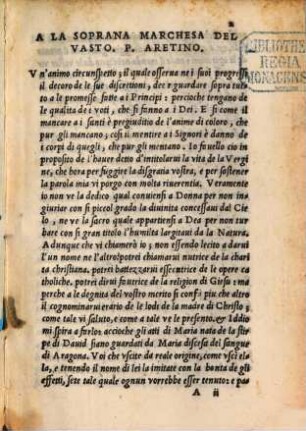 2
A LA SOPRANA MARCHESA DEL
VASTO. P. ARETINO.
BIBLIOTHE
REGIA
MONACENS
Vn'animo circunspetto; il quale osserua ne i suoi progressi
il decoro de le sue discretioni, dee riguardare sopra tut-
to a le promesse fatte a i Principi; percioche tengono de
le qualità de i voti, che si fanno a i Dei. E sì come il
mancare a i santi è pregiuditio de l'anime di coloro, che
pur gli mancano; così il mentire a i Signori è danno de
i corpi di quegli, che pur gli mentano. Io fauello cio in
proposito de l'hauer detto d'intitolarui la vita de la Vergi
ne, che hora per fuggire la disgratia vostra, e per sostener
la parola mia vi porgo con molta riuerentia. Veramente
io non ve la dedico qual conuiensi a Donna per non in
giuriar con sì picciol grado la diuinità concessaui dal Cie
lo, ne ve la sacro quale appartiensi a Dea per non tur
bare con sì gran titolo l'humiltà largitaui da la Natura.
Adunque che vi chiamerò io; non essendo lecito a darui
l'un nome ne l'altro? potrei chiamarui nutrice de la chari
tà christiana, potrei battezzarui essecutrice de le opere ca
tholiche, potrei dirui fautrice de la religion di Giesu; ma
perche a le degnità del vostro merito si confà piu che altro
il cognominarui erario de le lode de la madre di Christo;
come tale vi saluto, e come a tale ve le presento. & Iddio
mi spira a farlo: accioche gli atti di Maria nata de la stir
pe di Dauid siano guardati da Maria discesa del sangue
di Aragona. Voi che vscite da reale origine, come vscì el
la, e tenendo il nome di lei la imitate con la bontà de gli
effetti, sete tale quale ognun vorrebbe esser tenuto: e pa
A ii